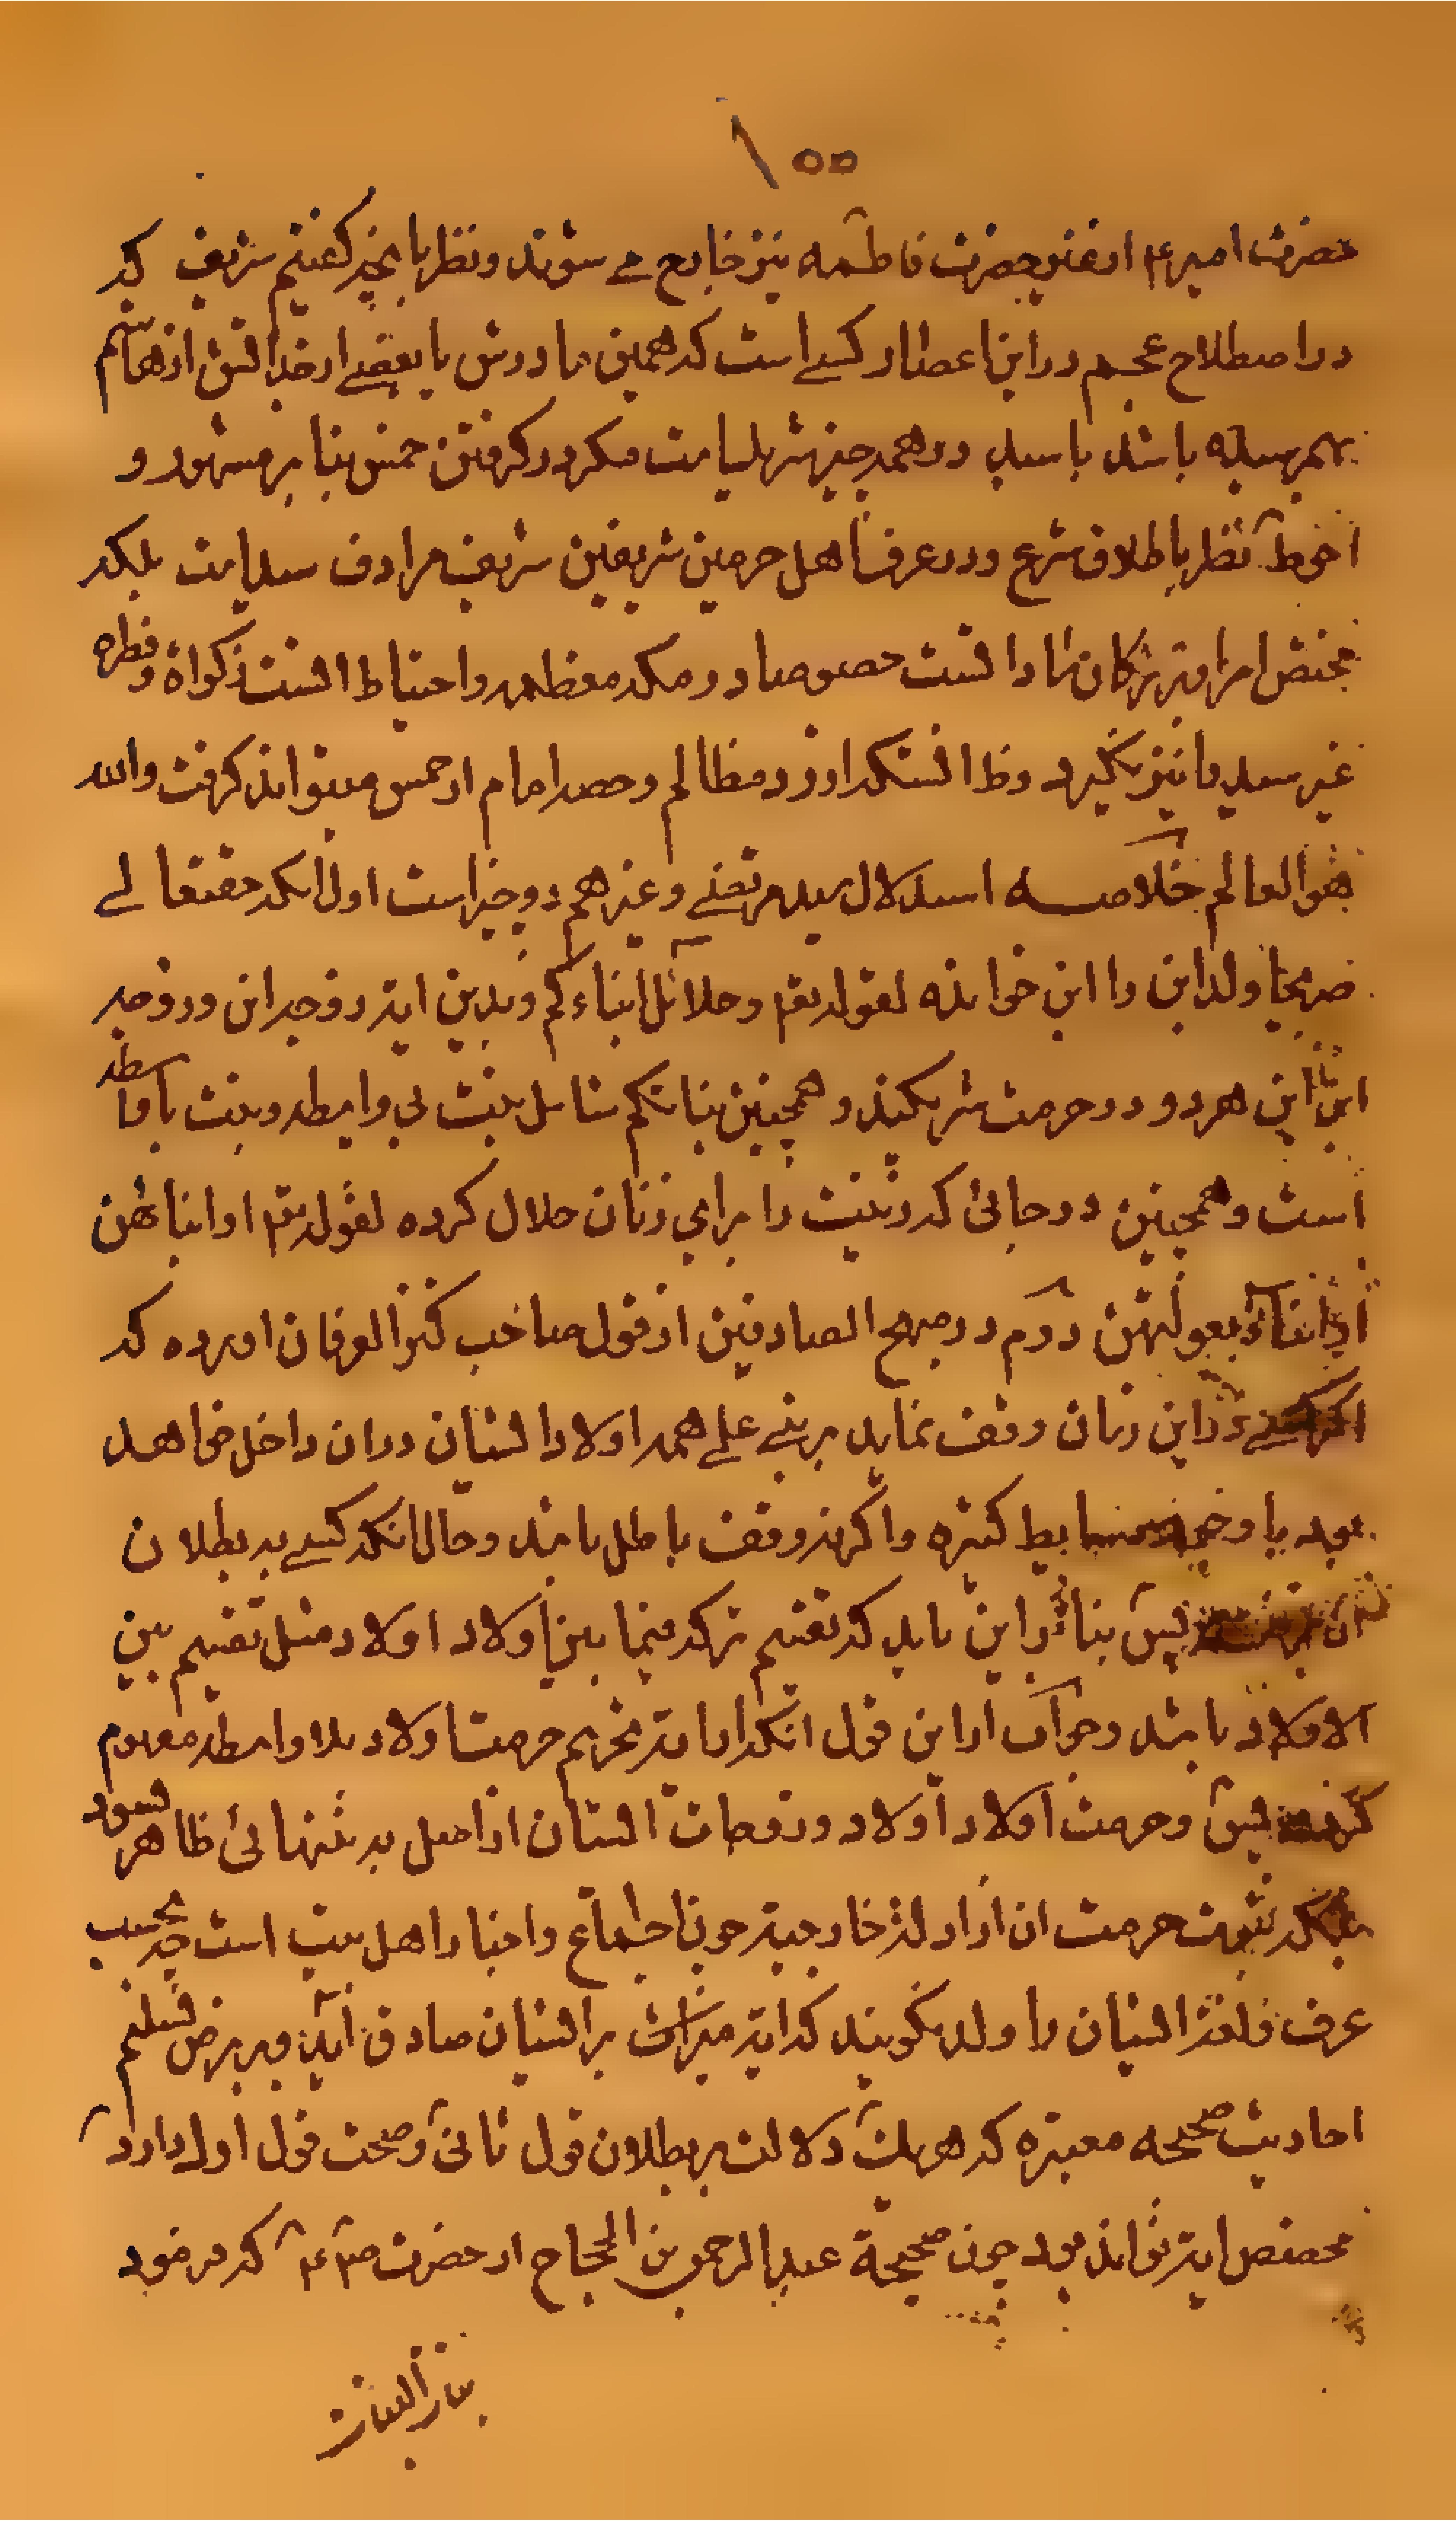 ١٥٥
حضرت امیر۴ از غیر حضرت فاطمه نیز خارج مے شوند و نظر بآنچه گفتیم شریف که
در اصطلاح عجم در این اعصار کسے است که همین مادرش یا بعضے از جداتش از هاشم
بهم رسیده باشد با سید در همه چیز شریک است مگر در گرفتن خمس بنا بر مشهور و
احوط نظر باطلاق شرع و در عرف اهل حرمین شریفین شریف مرادف سید است بلکه
مختص امراء و بزرگان سادات است خصوصا در مکه معظمه و احتیاط آنست زکواة و فطره
غیر سید را نیز نگیرد و ظ آنستکه از رد مظالم و حصه امام از خمس میتواند گرفت والله
هو العالم خلاصه استدلال سید مرتضے و غیرهم دو چیز است اول آنکه حقتعالے
صریحا ولد ابن را ابن خوانده لقوله تعم وحلائل ابناءکم و بدین ایه زوجه ابن و زوجه
ابن ابن هر دو در حرمت شریکند و همچنین بناتکم شامل بنت بی واسطه و بنت با واسطه
است و همچنین در جائی که زینت را برای زنان حلال کرده لقوله تعم او ابنائهن
او ابناء بعولتهن دوم در منهج الصادقین از قول صاحب کنز العرفان اورده که
اگر کسے در این زمان وقف نماید بر بنے علے همه اولاد ایشان در ان داخل خواهد
بود با وجود وسایط کثیره و اگر نه وقف باطل باشد و حال آنکه کسے به بطلان
ان نرفته پس بنا بر این باید که تقسیم ترکه فیما بین اولاد اولاد مثل تقسیم بین
الاولاد باشد و جواب از این قول انکه از ایة تحریم حرمت اولاد بلا واسطه معلوم
پس و حرمت اولاد اولاد و زوجات ایشان از اصل به تنهائی ظاهر نشود
بلکه ثبوت حرمت ان از ادله خارجیة چون اجماع و اخبار اهل بیت است چه بحسب
عرف و لغة ایشان را ولد نگویند که ایة میراث بر ایشان صادق اید و بر فرض تسلیم
احادیث صحیحه معتبره که هر یک دلالت بر بطلان قول ثانی و صحت قول اول دارد
مخصص ایة تواند بود چون صحیحة عبد الرحمن بن الحجاج از حضرت ص۴ که فرمود
بنات البنات